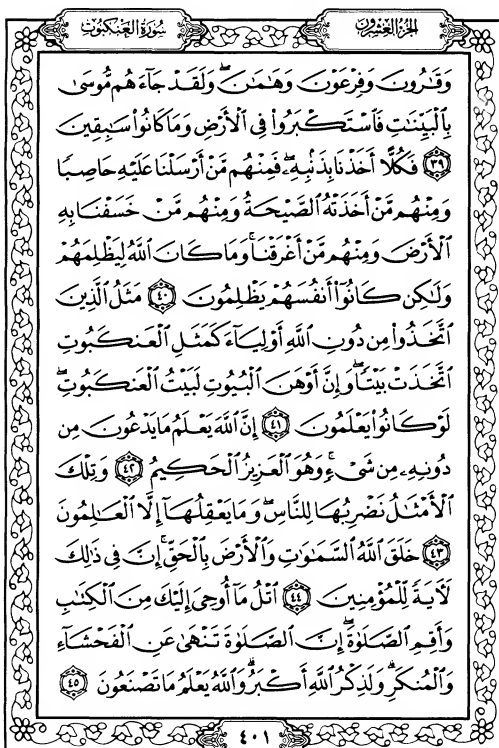 الجزء العشرون
سورة العنكبوت
وَقَٰرُونَ وَفِرۡعَوۡنَ وَهَٰمَٰنَۖ وَلَقَدۡ جَآءَهُم مُّوسَىٰ
بِٱلۡبَيِّنَٰتِ فَٱسۡتَكۡبَرُواْ فِي ٱلۡأَرۡضِ وَمَا كَانُواْ سَٰبِقِينَ
٣٩ فَكُلًّا أَخَذۡنَا بِذَنۢبِهِۦۖ فَمِنۡهُم مَّنۡ أَرۡسَلۡنَا عَلَيۡهِ حَاصِبٗا
وَمِنۡهُم مَّنۡ أَخَذَتۡهُ ٱلصَّيۡحَةُ وَمِنۡهُم مَّنۡ خَسَفۡنَا بِهِ
ٱلۡأَرۡضَ وَمِنۡهُم مَّنۡ أَغۡرَقۡنَاۚ وَمَا كَانَ ٱللَّهُ لِيَظۡلِمَهُمۡ
وَلَٰكِن كَانُوٓاْ أَنفُسَهُمۡ يَظۡلِمُونَ ٤٠ مَثَلُ ٱلَّذِينَ
ٱتَّخَذُواْ مِن دُونِ ٱللَّهِ أَوۡلِيَآءَ كَمَثَلِ ٱلۡعَنكَبُوتِ
ٱتَّخَذَتۡ بَيۡتٗاۖ وَإِنَّ أَوۡهَنَ ٱلۡبُيُوتِ لَبَيۡتُ ٱلۡعَنكَبُوتِۖ
لَوۡ كَانُواْ يَعۡلَمُونَ ٤١ إِنَّ ٱللَّهَ يَعۡلَمُ مَا يَدۡعُونَ مِن
دُونِهِۦ مِن شَيۡءٖۚ وَهُوَ ٱلۡعَزِيزُ ٱلۡحَكِيمُ ٤٢ وَتِلۡكَ
ٱلۡأَمۡثَٰلُ نَضۡرِبُهَا لِلنَّاسِۖ وَمَا يَعۡقِلُهَآ إِلَّا ٱلۡعَٰلِمُونَ
٤٣ خَلَقَ ٱللَّهُ ٱلسَّمَٰوَٰتِ وَٱلۡأَرۡضَ بِٱلۡحَقِّۚ إِنَّ فِي ذَٰلِكَ
لَأٓيَةٗ لِّلۡمُؤۡمِنِينَ ٤٤ ٱتۡلُ مَآ أُوحِيَ إِلَيۡكَ مِنَ ٱلۡكِتَٰبِ
وَأَقِمِ ٱلصَّلَوٰةَۖ إِنَّ ٱلصَّلَوٰةَ تَنۡهَىٰ عَنِ ٱلۡفَحۡشَآءِ
وَٱلۡمُنكَرِۗ وَلَذِكۡرُ ٱللَّهِ أَكۡبَرُۗ وَٱللَّهُ يَعۡلَمُ مَا تَصۡنَعُونَ ٤٥
٤٠١